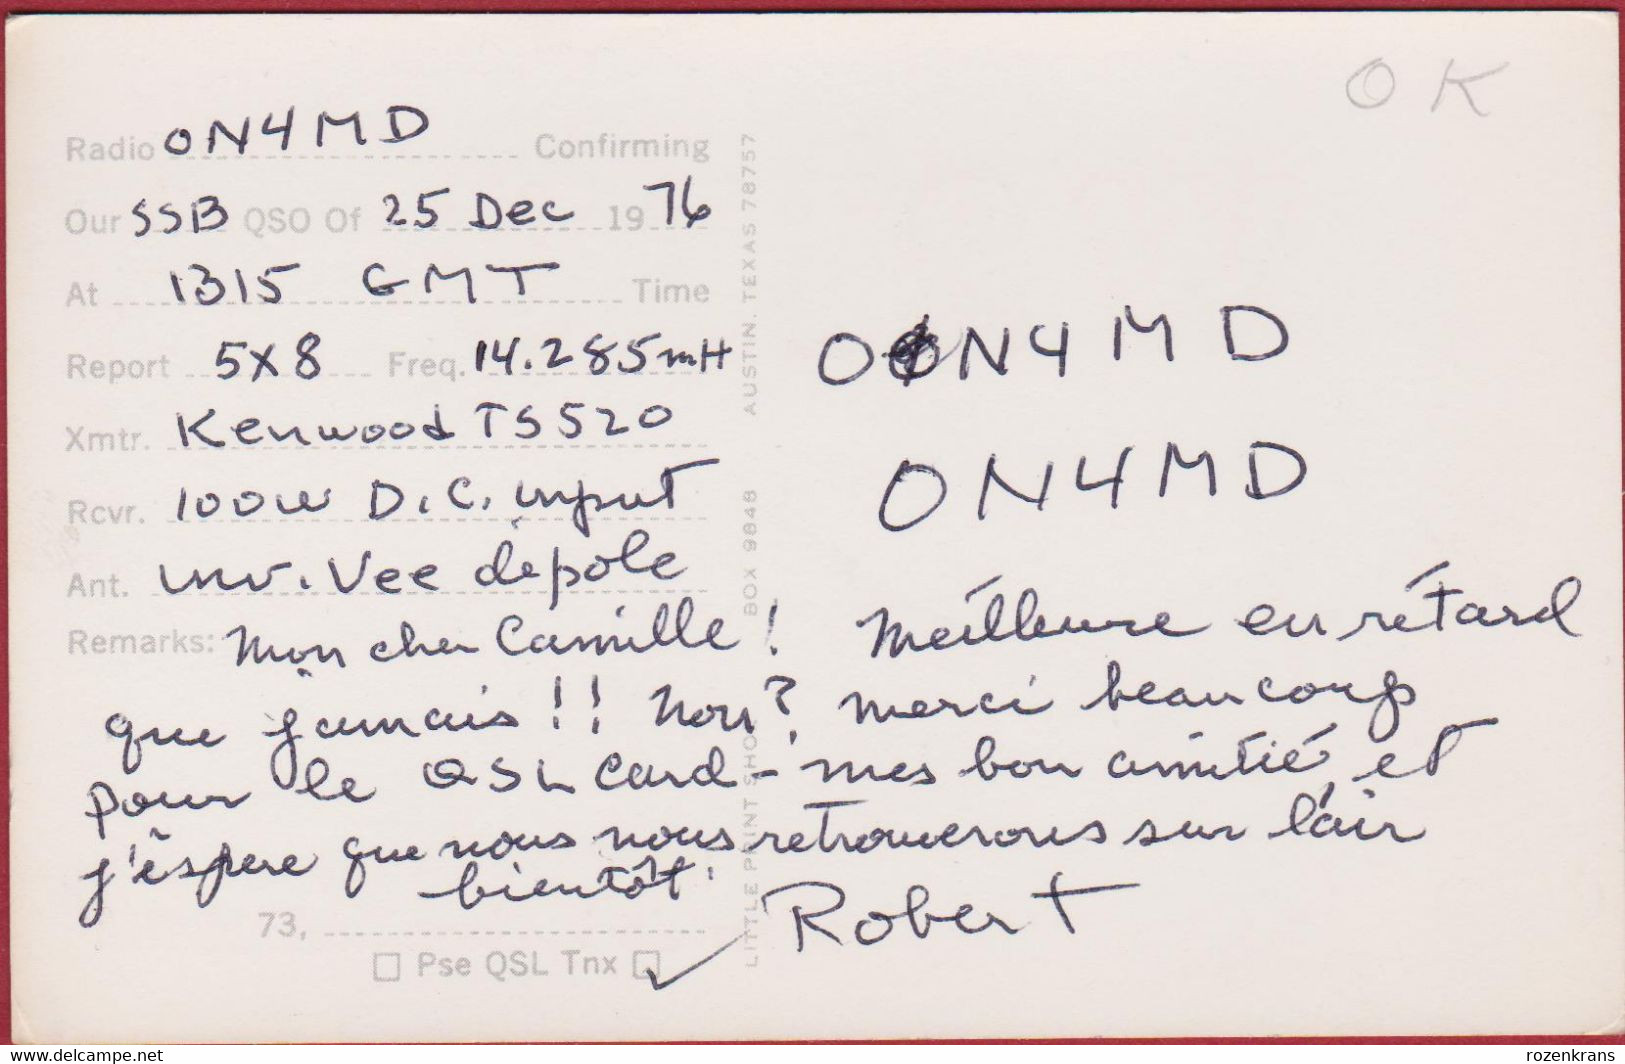 OK
Radio ON4MD Confirming
Our SSB QSO Of 25 Dec 1976
At 1315 GMT Time
Report 5X8 Freq. 14.285mH
Xmtr. Kenwood TS520
Rcvr. 100w D.C. input
Ant. inv. Vee dipole
ON4MD
ON4MD
Remarks: Mon cher Camille! Meilleure en rétard
que jamais!! Non? merci beaucoup
pour le QSL card - mes bon amitié, et
j'éspere que nous nous retrouverons sur l'air
bientôt.
73,
Robert
Pse QSL Tnx
LITTLE PRINT SHOP BOX 9848 AUSTIN, TEXAS 78757
delcampe.net
rozenkrans